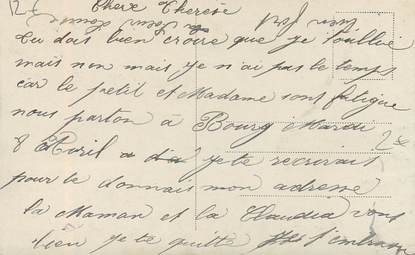 Chere Therese
tu dois bien croire que je t'oublie
mais non mais je n'ai pas le temps
car le petit et Madame sont fatigue
nous parton à Bourg Mardi
8 Avril a dis je te recrirait
pour te donnais mon adresse
la Maman et la Claudia vous
bien je te quitte t'embrasse